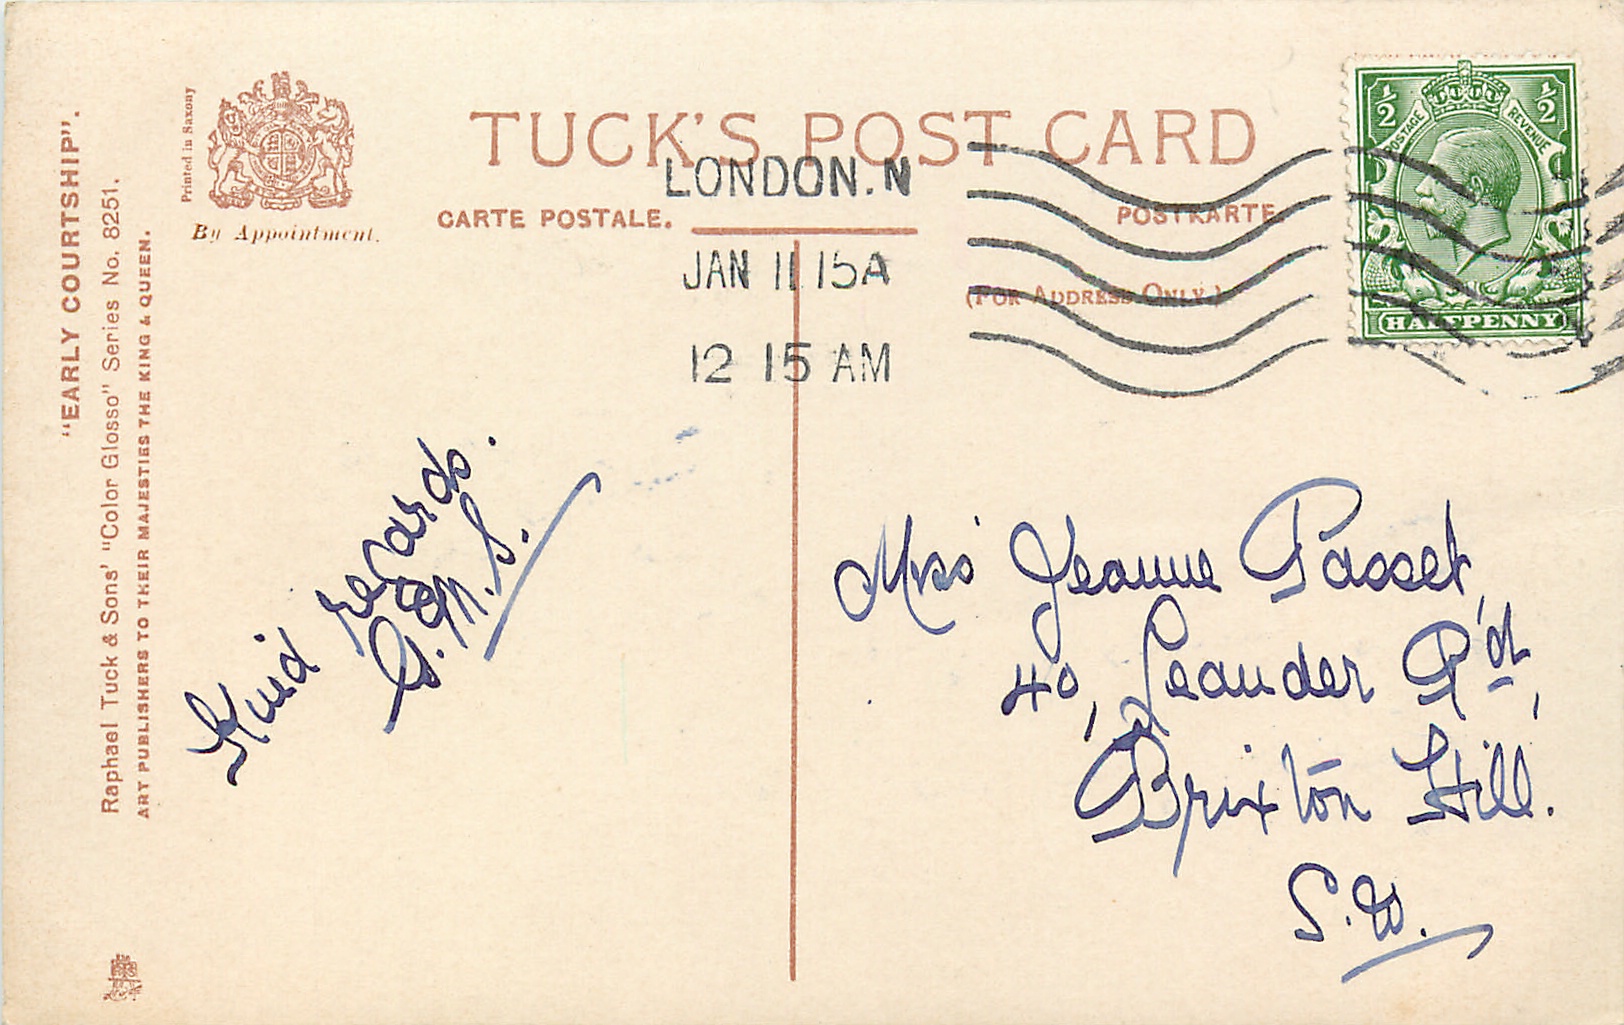 "EARLY COURTSHIP".
Raphael Tuck & Sons' "Color Glosso" Series No. 8251.
ART PUBLISHERS TO THEIR MAJESTIES THE KING & QUEEN.
Printed in Saxony
By Appointment.
TUCK'S POST CARD
CARTE POSTALE.
POSTKARTE.
(FOR ADDRESS ONLY.)
LONDON.N
JAN 11 15A
12 15 AM
½ ½
POSTAGE REVENUE
HALFPENNY
Kind regards.
G.M.S.
Miss Jeanne Passet,
40, Leander Rd,
Brixton Hill.
S.W.